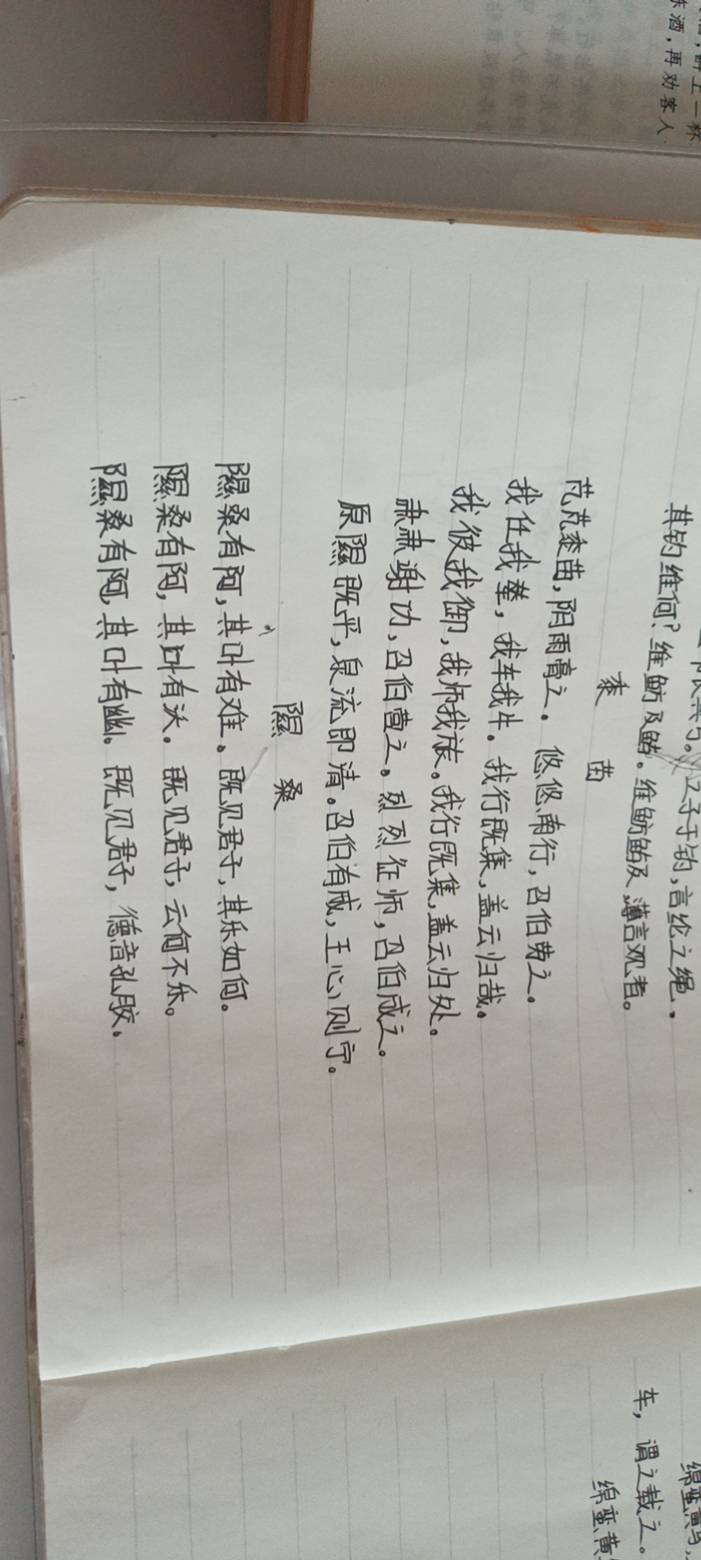 酒，再劝客人
之子于钓，言纶之绳。
其钓维何？维鲂及鱮。维鲂鱮及，薄言观者。
黍苗
芃芃黍苗，阴雨膏之。悠悠南行，召伯劳之。
我任我辇，我车我牛。我行既集，盖云归哉。
我彼我御，我师我旅。我行既集，盖云归处。
肃肃谢功，召伯营之。烈烈征师，召伯成之。
原隰既平，泉流即清。召伯有成，王心则宁。
隰桑
隰桑有阿，其叶有难。既见君子，其乐如何。
隰桑有阿，其叶有沃。既见君子，云何不乐。
隰桑有阿，其叶有幽。既见君子，德音孔胶。
车，谓之载之。
绵蛮黄